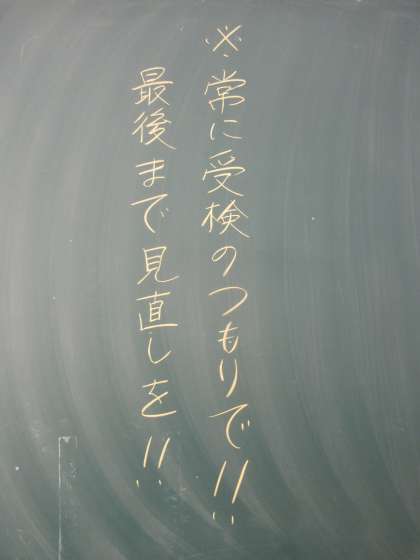 ※常に受検のつもりで!!
最後まで見直しを!!